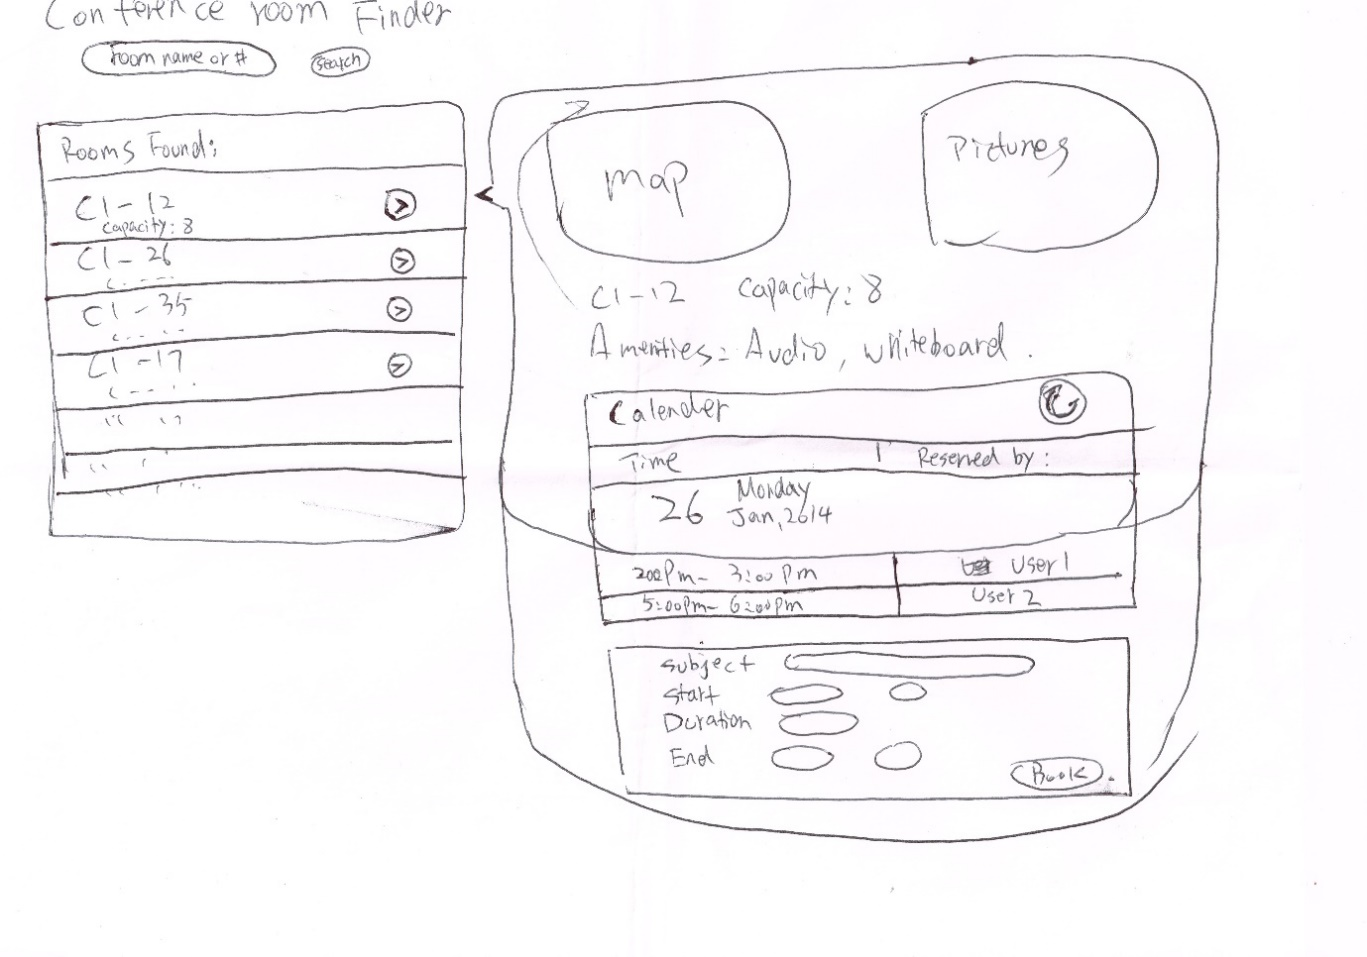 Conference room Finder
room name or #
search
Rooms Found:
C1-12
capacity: 8
C1-26
C1-35
C1-17
map
Pictures
C1-12 Capacity: 8
Amenities: Audio, whiteboard.
Calender
Time | Reserved by:
26 Monday
Jan, 2014
2:00 Pm- 3:00 Pm User 1
5:00pm- 6:00pm User 2
Subject
Start
Duration
End
Book